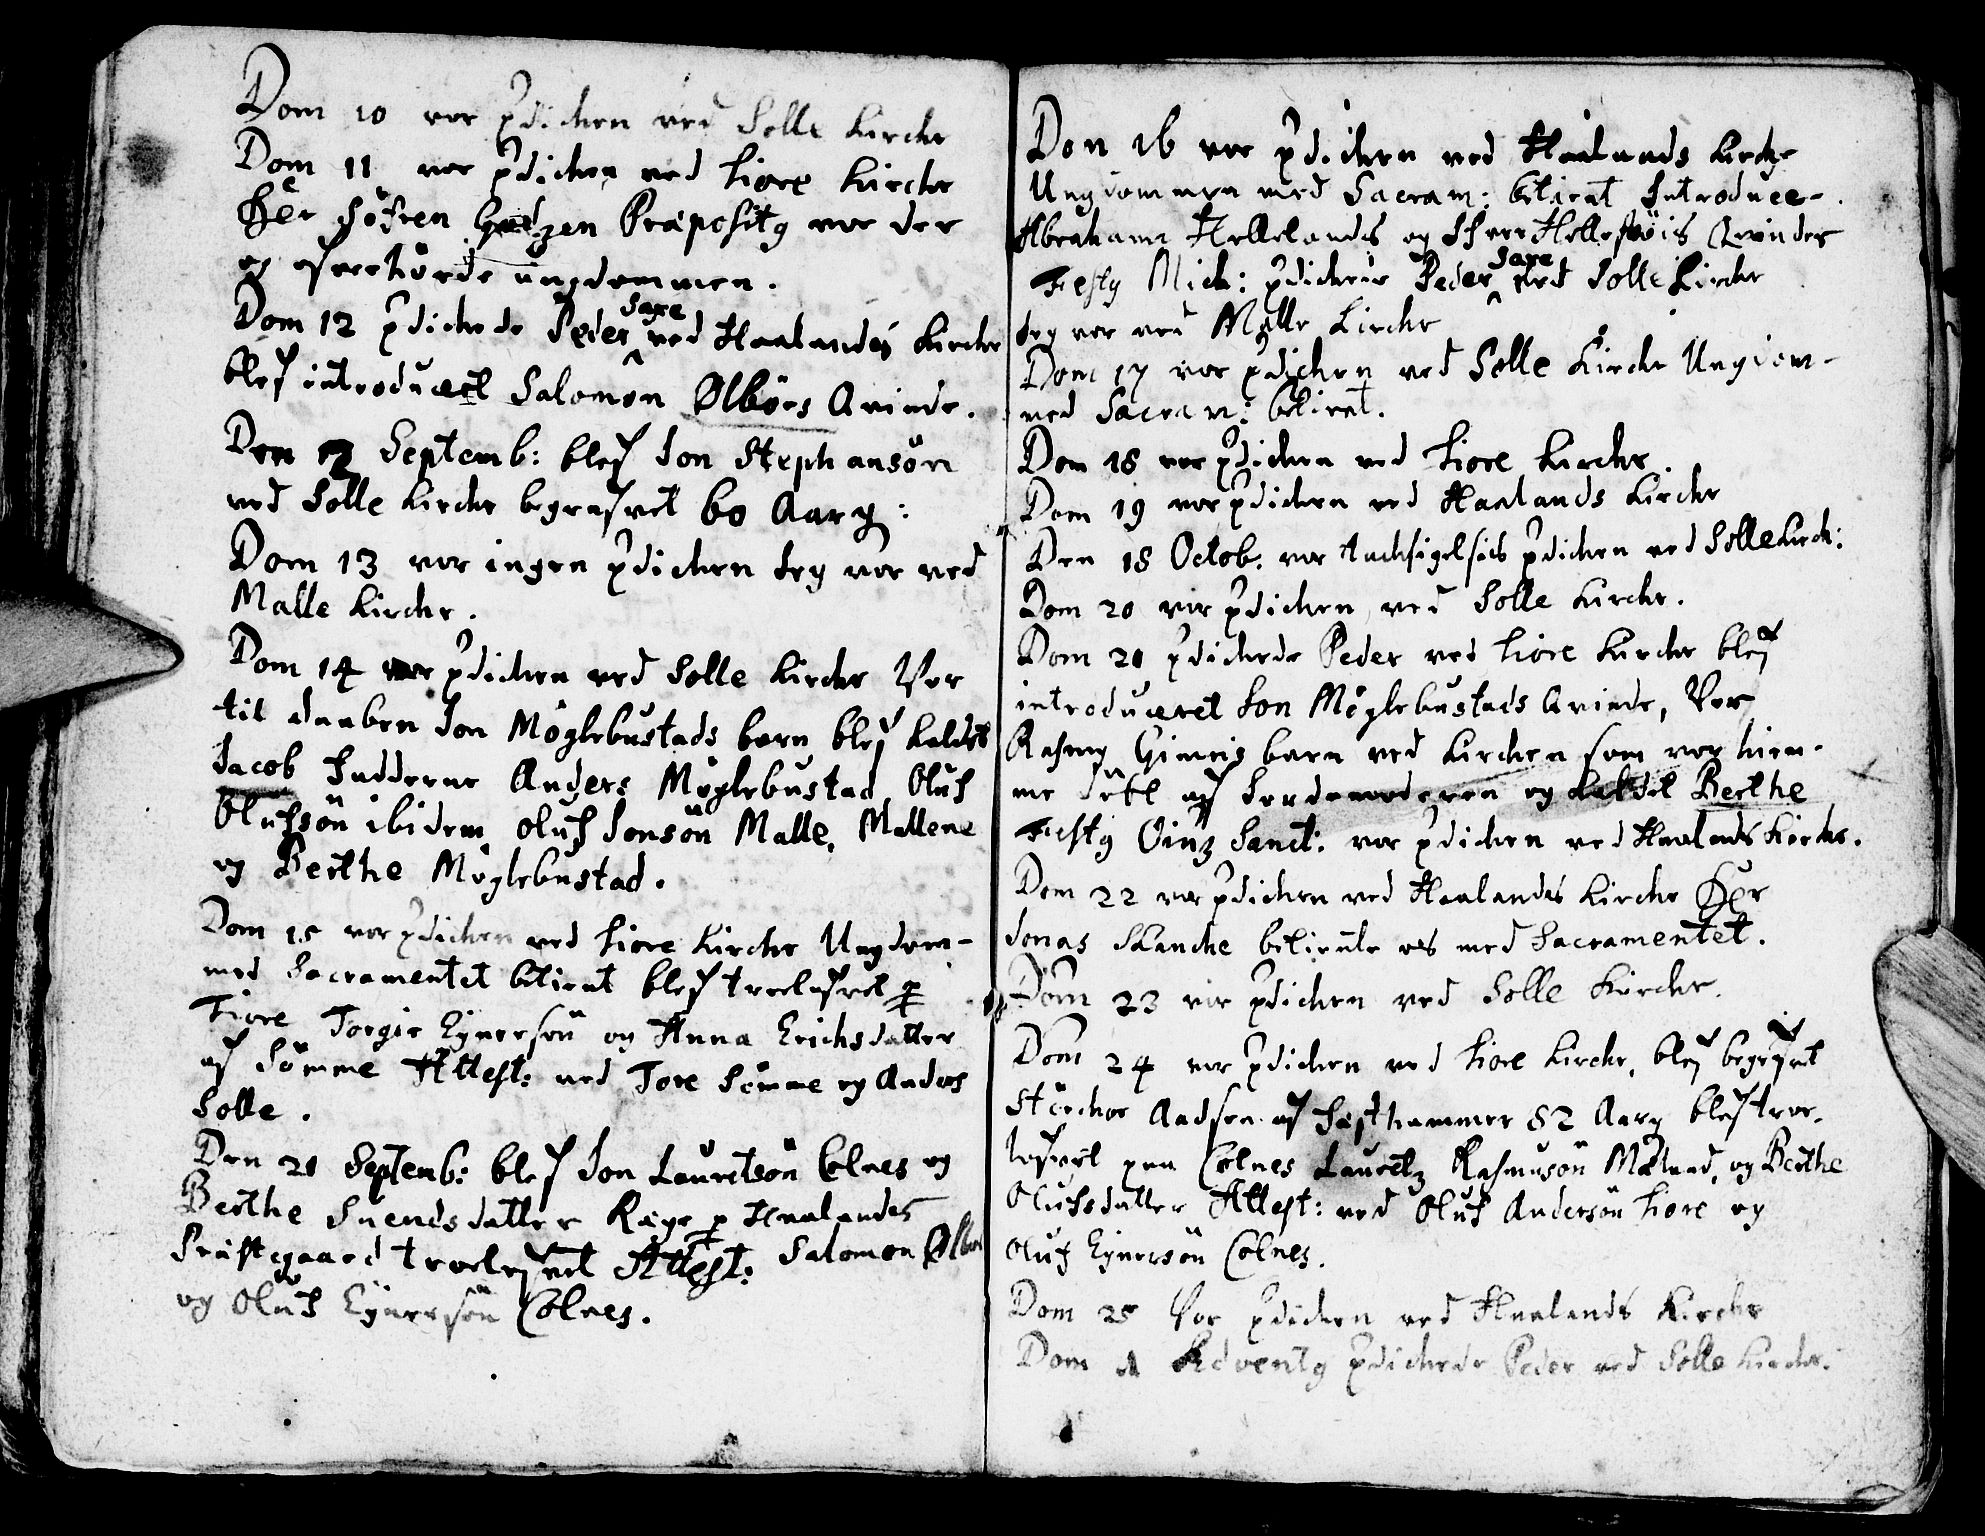 Dom 10 vor pdichen ved Solle Kirche
Dom 11 vor pdichen ved Tiore Kirche
Her Söfren Præposity vor der
og ofverhörde ungdommen.
Dom 12 pdichede Peder Saxe ved Haalandes Kirche
blef introduceret Salomon Ølbörs Qvinde.
Den Septemb: blef Jon Stephansön
ved Solle Kirche begrafvet 60 Aarg:
Dom 13 vor ingen pdichen Jeg vor ved
Malle Kirche.
Dom 14 vor pdichen ved Solle Kirche Vor
til daaben Jon Möglebustads barn blef kaldet
Jacob Fadderne Anders Möglebustad Oluf
Olufsön ibidem, Oluf Jonsön Malle, Mallene
og Berthe Möglebustad.
Dom 15 vor pdichen ved Tiore Kirche Ungdom-
med Sacramentet betient blef troelofvet p
Tiore Torgir Eynersön og Anna Erichsdatter
af Sömme Attest: ved Tore Sömme og Anders
Solle.
Den 21 Septemb: blef Jon Lauretsön Colnes og
Berthe Suendsdatter Ræge p Haalandes
Præstegaard troelofvet Attest: Salomon Ølbör
og Oluf Eynersön Colnes.
Dom 16 vor pdichen ved Haalands Kirche
Ungdommen med Sacram: betient Introduce-
Abrahams Hellelands og Qvinder
Festy Mich: pdichede Peder Saxe ved Solle Kirche
Jeg vor ved Malle Kirche
Dom 17 vor pdichen ved Solle Kirche Ungdom-
med Sacram: betient.
Dom 18 vor pdichen ved Tiore Kirche.
Dom 19 vor pdichen ved Haalands Kirche
Den 18 Octob: vor tachsigelsis pdichen ved Solle Kirch:
Dom 20 vor pdichen ved Solle Kirche.
Dom 21 pdichede Peder ved Tiore Kirche blef
introduceret Jon Möglebustads Qvinde, Vor
Rasmy Gimris barn ved Kirchen som vor hiem-
me döbt af Jordemoderen og kaldet Berthe
Festy Oinz Sanct: vor pdichen ved Haalands Kirche.
Dom 22 vor pdichen ved Haalandes Kirche Her
Jonas Skanche betiente os med Sacramentet.
Dom 23 vor pdichen ved Solle Kirche.
Dom 24 vor pdichen ved Tiore Kirche, blef begrafvet
Störchor Aadsen af 82 Aarg blef troe-
lofvet paa Colnes Lauretz Rasmusön Meland, og Berthe
Olufsdatter Attest: ved Oluf Andersön Tiore og
Oluf Eynersön Colnes.
Dom 25 Vor pdichen ved Haalands Kirche
Dom 1 Adventy pdichede Peder ved Solle Kirche.